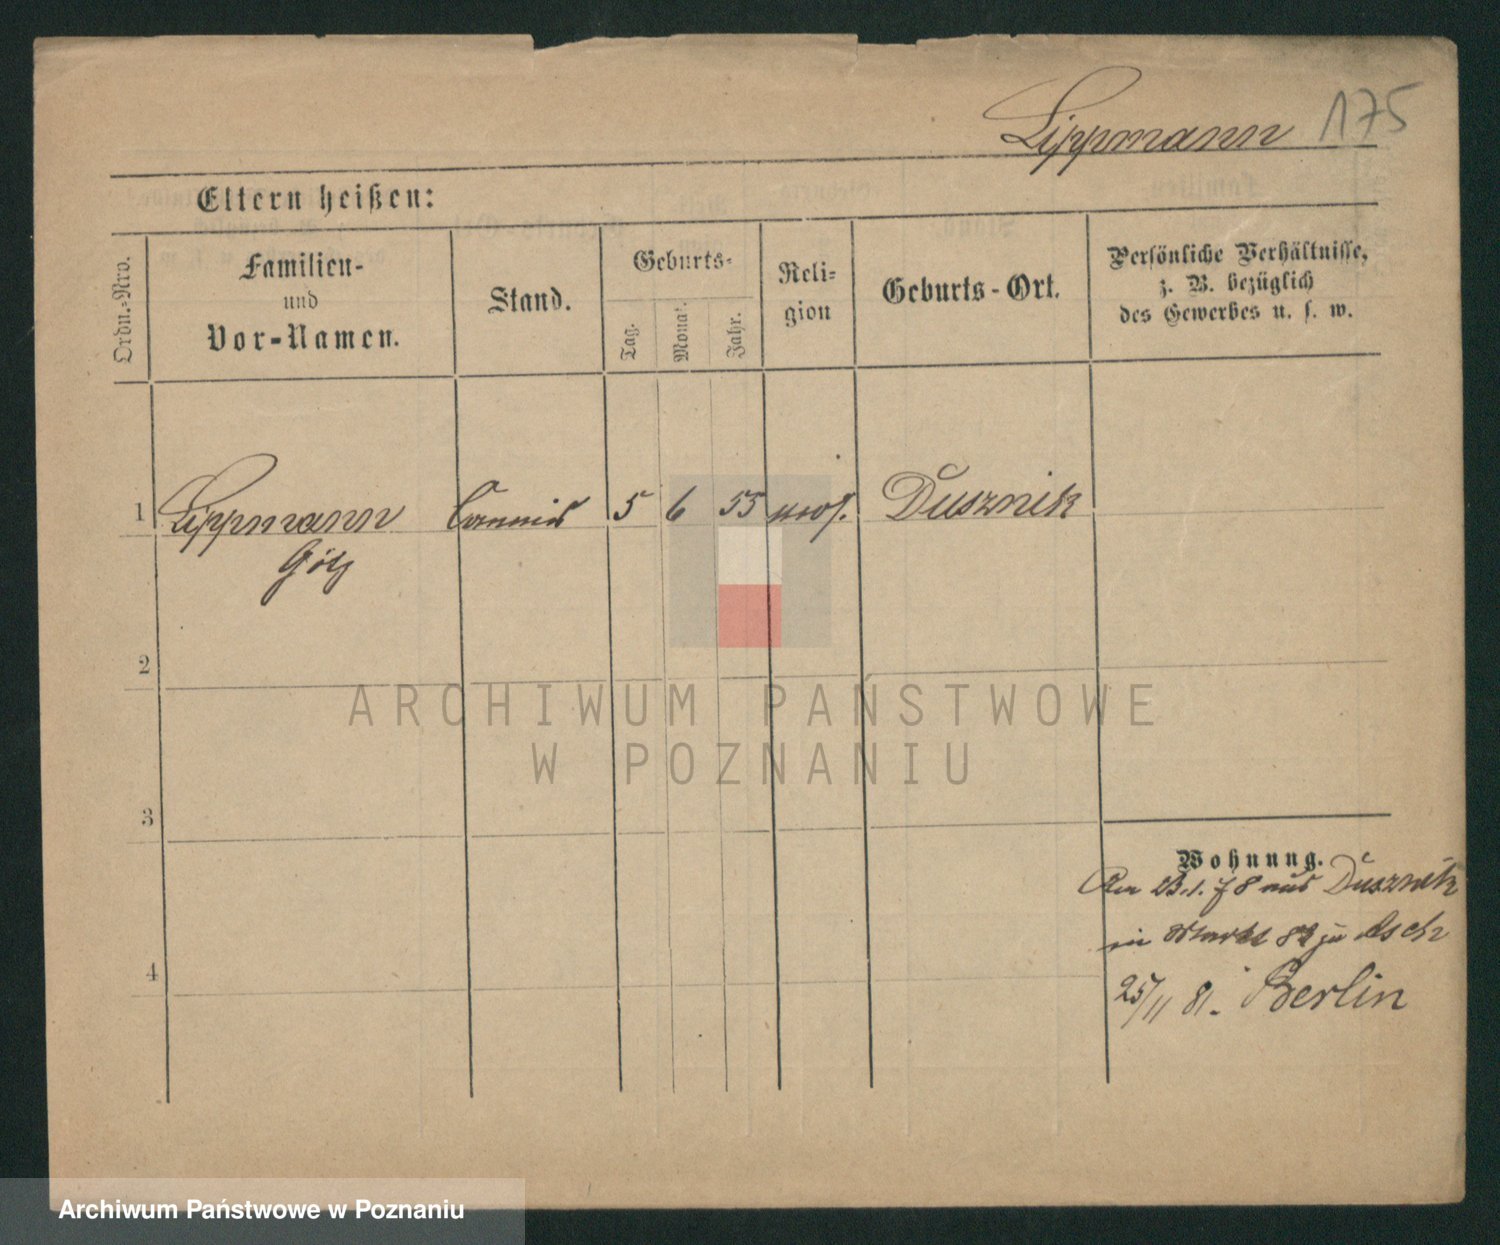 Lippmann 175
Eltern heißen:
Ordn.-Nro.
Familien-
und
Vor-Namen.
Stand.
Geburts-
Tag.
Monat.
Jahr.
Reli-
gion
Geburts-Ort.
Persönliche Verhältnisse,
z. B. bezüglich
des Gewerbes u. s. w.
1 Lippmann Commis 5 6 55 mos. Dusznik
Götz
2
3
4
Wohnung.
aus Dusznik
in Markt zu Asch
25/11 81. Berlin
ARCHIWUM PAŃSTWOWE
W POZNANIU
Archiwum Państwowe w Poznaniu